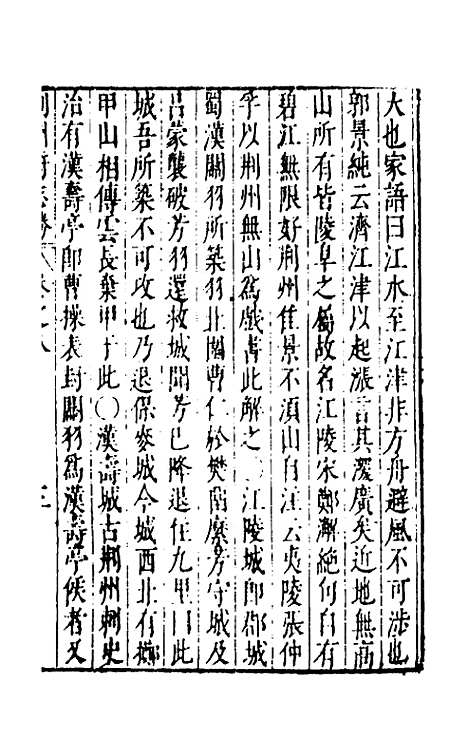 大也家語曰江水至江津非方舟避風不可涉也
郭景純云濟江津以起漲言其深廣矣近地無高
山所有皆陵阜之屬故名江陵宋鄭獬絶句自有
碧江無限好荆州佳景不湏山自注云夷陵張仲
孚以荆州無山爲戲書此解之○江陵城即郡城
蜀漢關羽所築羽北圍曹仁於樊南麋芳守城及
吕蒙襲破芳羽還救城聞芳已降退住九里曰此
城吾所築不可攻也乃退保麥城今城西北有擲
甲山相傳雲長棄甲于此○漢壽城古荆州刺史
治有漢壽亭即曹操表封關羽爲漢壽亭侯者又
荆州府志勝 卷之八 三